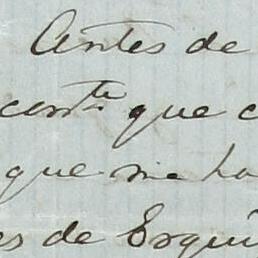 Antes de
conte que c
que me ha
es de Esqui